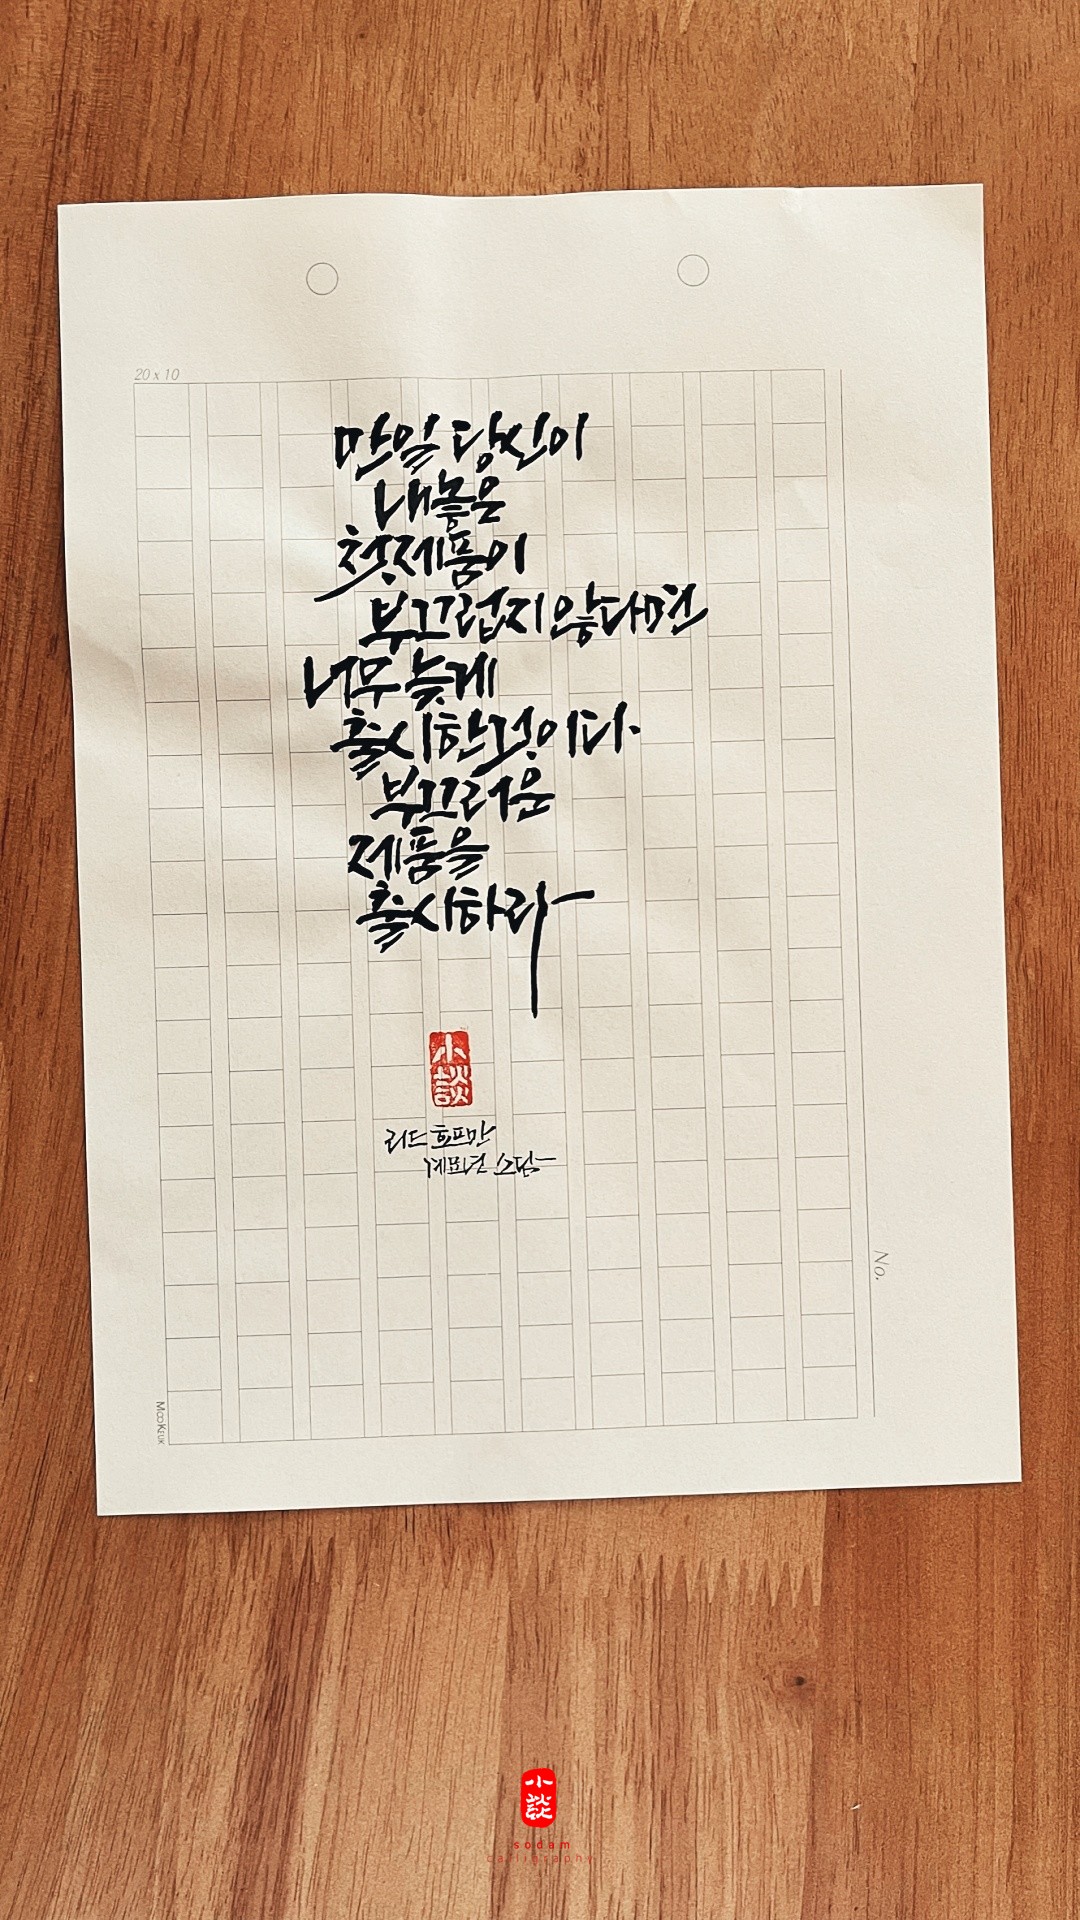 20 x 10
만일 당신이
내놓은
첫 제품이
부끄럽지 않다면
너무 늦게
출시한 것이다.
부끄러운
제품을
출시하라
小談
리드 호프만
소담
No.
MooKeuk
小談
sodam
calligraphy